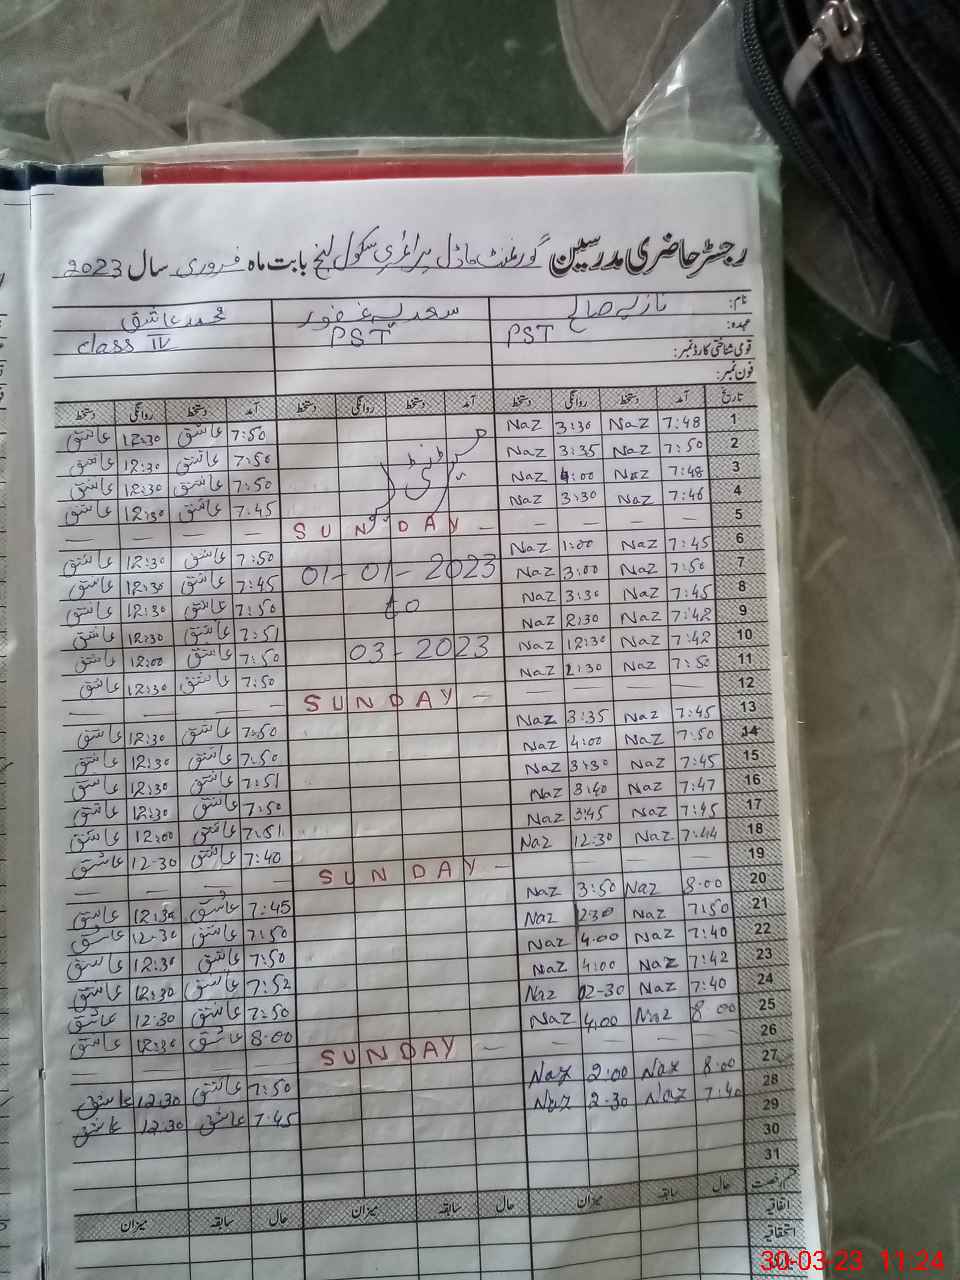 رجسٹر حاضری مدرسین گورنمنٹ ماڈل پرائمری سکول بابت ماہ فروری سال 2023
نام: نازیہ صالح سعدیہ غفور محمد عاشق
عہدہ: PST PST Class IV
قومی شناختی کارڈ نمبر:
فون نمبر:
تاریخ آمد دستخط روانگی دستخط آمد دستخط روانگی دستخط آمد دستخط روانگی دستخط
1 7:48 Naz 3:30 Naz 7:50 عاشق 12:30 عاشق
2 7:50 Naz 3:35 Naz 7:50 عاشق 12:30 عاشق
3 7:48 Naz 4:00 Naz 7:50 عاشق 12:30 عاشق
4 7:46 Naz 3:30 Naz 7:45 عاشق 12:30 عاشق
5 — — — — SUNDAY — — — —
6 7:45 Naz 1:00 Naz 7:50 عاشق 12:30 عاشق
7 7:50 Naz 3:00 Naz 01-01-2023 7:45 عاشق 12:30 عاشق
8 7:45 Naz 3:30 Naz to 7:50 عاشق 12:30 عاشق
9 7:42 Naz 2:30 Naz 7:51 عاشق 12:30 عاشق
10 7:42 Naz 12:30 Naz 03-2023 7:50 عاشق 12:00 عاشق
11 7:50 Naz Naz 7:50 عاشق 12:30 عاشق
12 — — — — SUNDAY — — — —
13 7:45 Naz 3:35 Naz 7:50 عاشق 12:30 عاشق
14 7:50 Naz 4:00 Naz 7:50 عاشق 12:30 عاشق
15 7:45 Naz 3:30 Naz 7:51 عاشق 12:30 عاشق
16 7:47 Naz 3:40 Naz 7:50 عاشق 12:30 عاشق
17 7:45 Naz 3:45 Naz 7:51 عاشق 12:00 عاشق
18 7:44 Naz 12:30 Naz 7:40 عاشق 12-30 عاشق
19 — — — — SUNDAY — — — —
20 8:00 Naz 3:50 Naz 7:45 عاشق 12:30 عاشق
21 7:50 Naz 2:30 Naz 7:50 عاشق 12-30 عاشق
22 7:40 Naz 4:00 Naz 7:50 عاشق 12:30 عاشق
23 7:42 Naz 4:00 Naz 7:52 عاشق 12:30 عاشق
24 7:40 Naz 12-30 Naz 7:50 عاشق 12:30 عاشق
25 8:00 Naz 4:00 Naz 8:00 عاشق 12:30 عاشق
26 — — — — SUNDAY — — — —
27 8:00 Naz 2:00 Naz 7:50 عاشق 12:30 عاشق
28 7:40 Naz 2:30 Naz 7:45 عاشق 12:30 عاشق
29
30
31
قسم رخصت حال سابقہ میزان حال سابقہ میزان حال سابقہ میزان
اتفاقیہ
استحقاقیہ
30-03-23 11:24